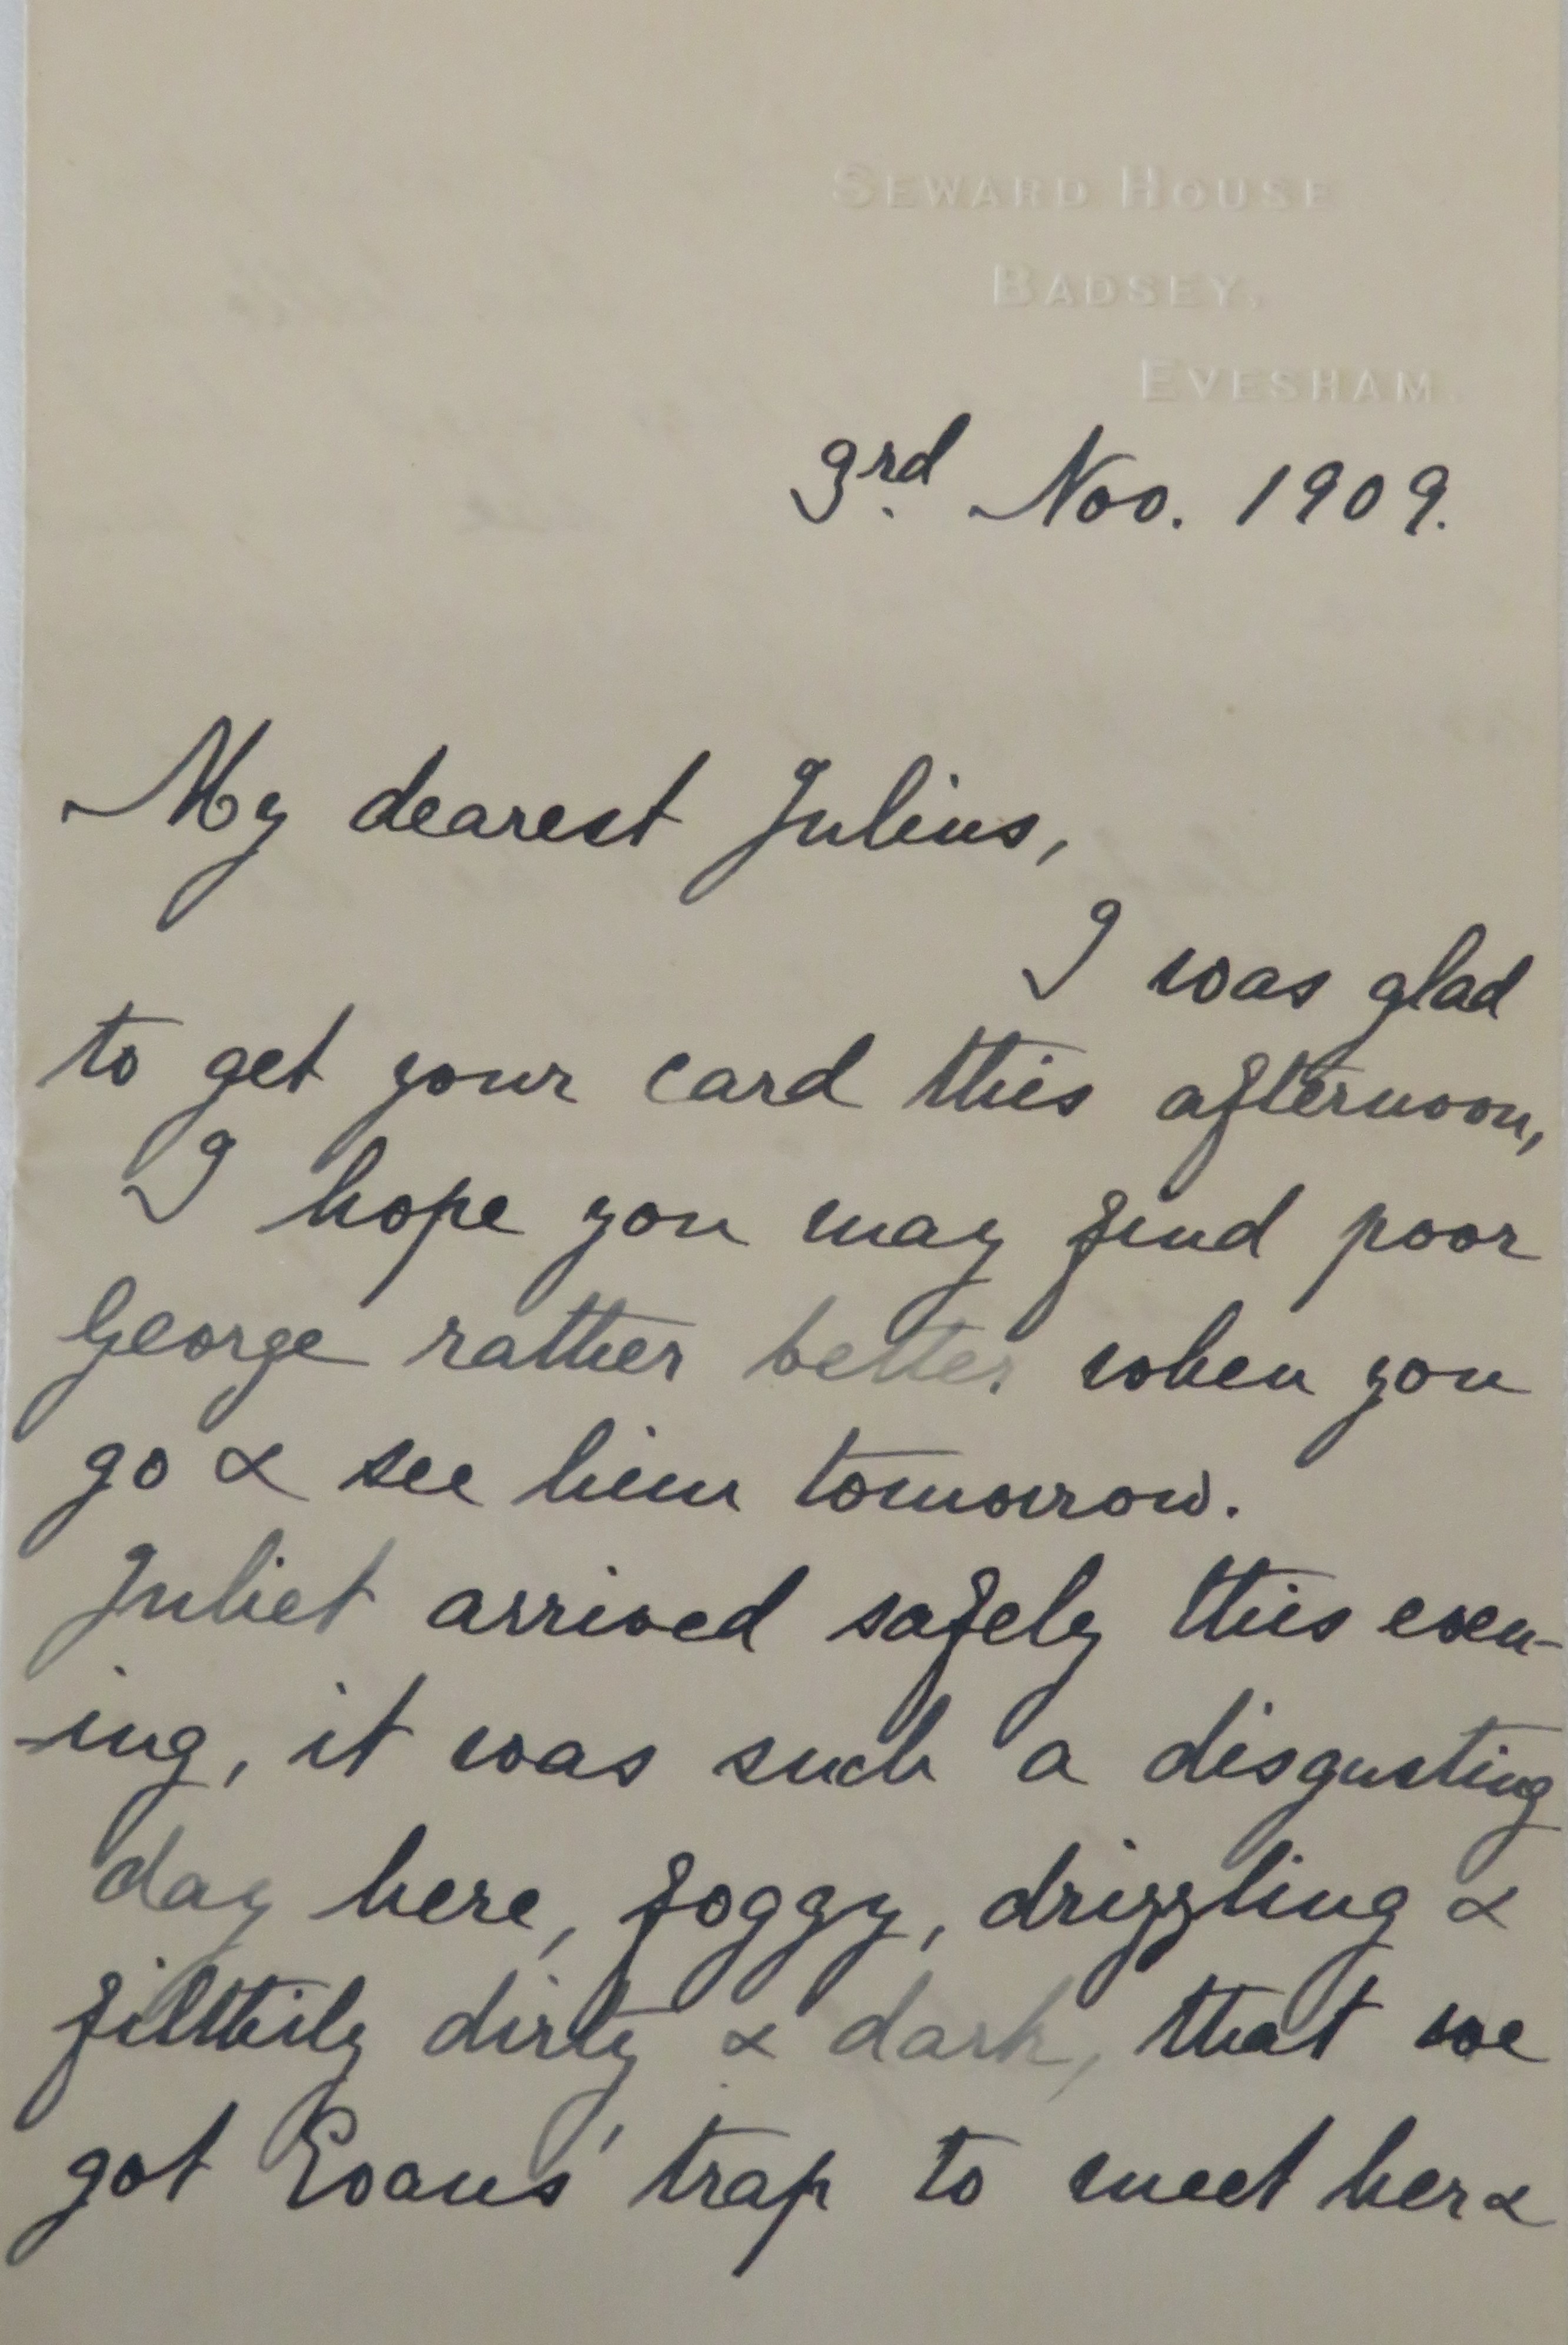 SEWARD HOUSE
BADSEY,
EVESHAM.
3rd. Nov. 1909.
My dearest Julius,
I was glad
to get your card this afternoon,
I hope you may find poor
George rather better when you
go & see him tomorrow.
Juliet arrived safely this even-
-ing, it was such a disgusting
day here, foggy, drizzling &
filthily dirty & dark, that we
got Evans' trap to meet her &